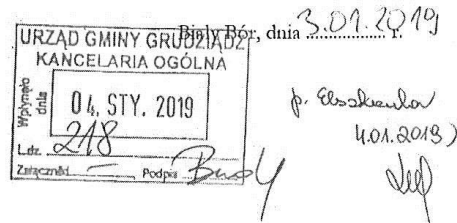 Biały Bór, dnia 3.01.2019 r.
URZĄD GMINY GRUDZIĄDZ
KANCELARIA OGÓLNA
Wpłynęło
dnia
04. STY. 2019
L.dz. 218
Załączniki — Podpis
p.
4.01.2019)